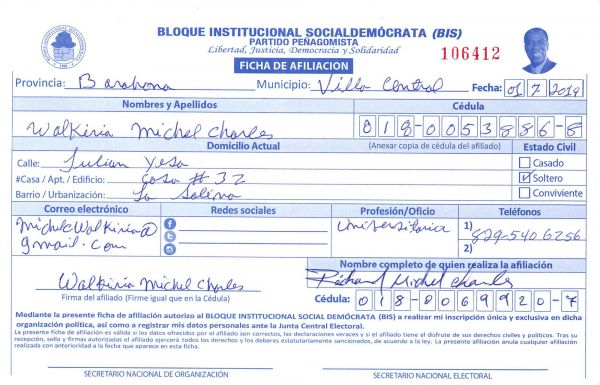 BLOQUE INSTITUCIONAL SOCIALDEMÓCRATA (BIS)
PARTIDO PEÑAGOMISTA
Libertad, Justicia, Democracia y Solidaridad
FICHA DE AFILIACION
106412
Provincia: Barahona Municipio: Villa Central Fecha: 01/7/2019
Nombres y Apellidos Cédula
Walkiria Michel Charles 018-0053886-8
Domicilio Actual (Anexar copia de cédula del afiliado) Estado Civil
Calle: Julian Yesa Casado
#Casa / Apt. / Edificio: Casa # 32 Soltero
Barrio / Urbanización: La Salina Conviviente
Correo electrónico Redes sociales Profesión/Oficio Teléfonos
michelWalkiria@ Universitaria 1) 829-540 6256
gmail.com 2)
Nombre completo de quien realiza la afiliación
Walkiria Michel Charles Richard Michel Charles
Firma del afiliado (Firme igual que en la Cédula) Cédula: 018-0069920-7
Mediante la presente ficha de afiliación autorizo al BLOQUE INSTITUCIONAL SOCIAL DEMÓCRATA (BIS) a realizar mi inscripción única y exclusiva en dicha
organización política, así como a registrar mis datos personales ante la Junta Central Electoral.
La presente ficha de afiliación es válida si los datos ofrecidos por el afiliado son correctos, las declaraciones veraces y si el afiliado tiene el disfrute de sus derechos civiles y políticos. Tras su
recepción, sello y firmas autorizadas el afiliado ejercerá todos los derechos y los deberes estatutariamente sancionados, de acuerdo a la ley. La presente afiliación anula cualquier afiliación
realizada con anterioridad a la fecha que aparece en esta ficha.
SECRETARIO NACIONAL DE ORGANIZACIÓN SECRETARIO NACIONAL ELECTORAL